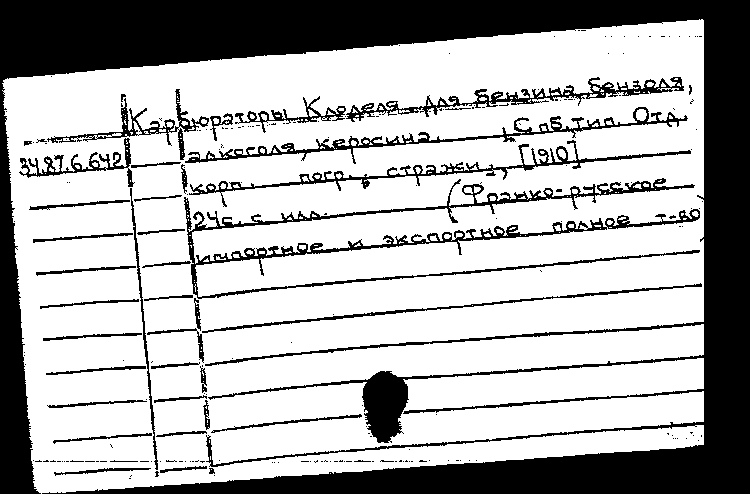 Карбюраторы Клоделя для бензина, бензоля,
34.87.6.642 алкоголя, керосина. , Спб, тип. Отд.
корп. погр. стражи, [1910].
24с. с илл. (Франко-русское
импортное и экспортное полное т-во)